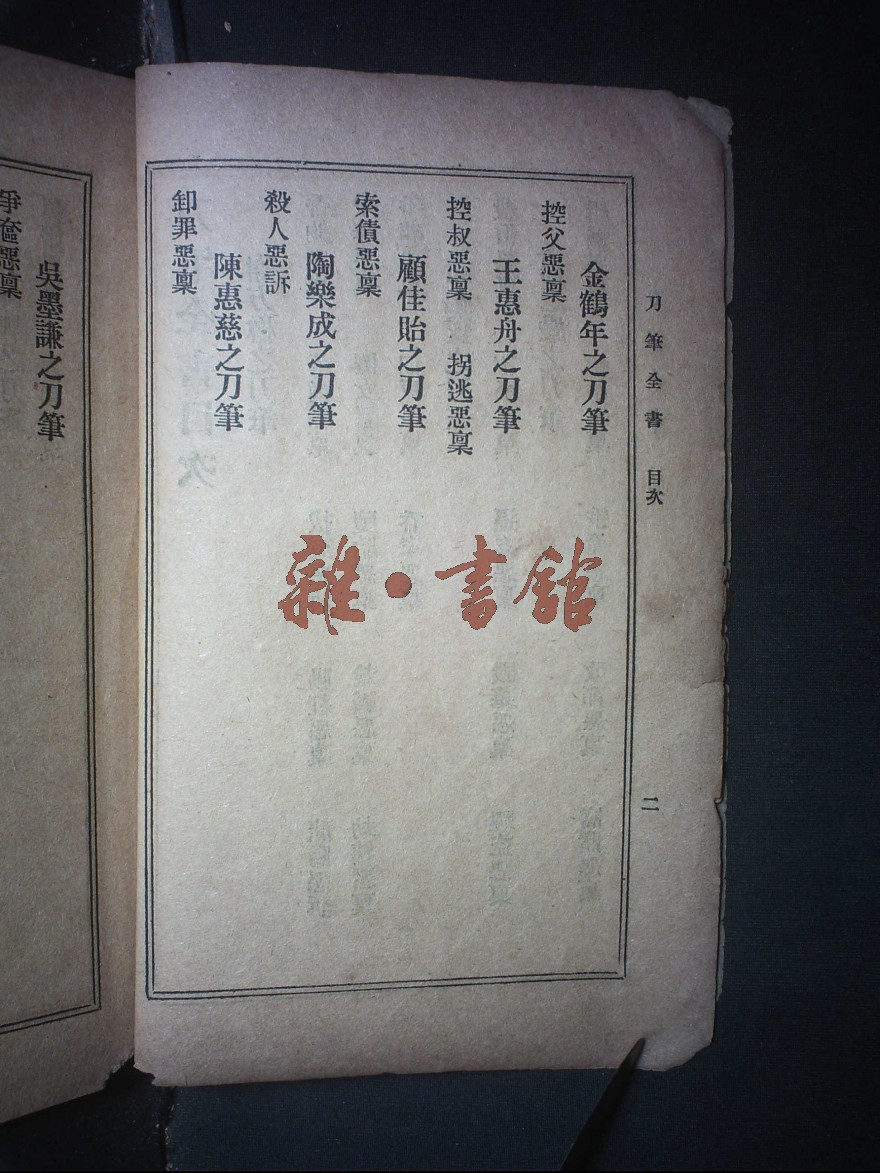 刀筆全書　目次
二
金鶴年之刀筆
控父惡稟
王惠舟之刀筆
控叔惡稟　拐逃惡稟
顧佳貽之刀筆
索債惡稟
陶樂成之刀筆
殺人惡訴
陳惠慈之刀筆
卸罪惡稟
吳墨謙之刀筆
爭奩惡稟
雜·書館